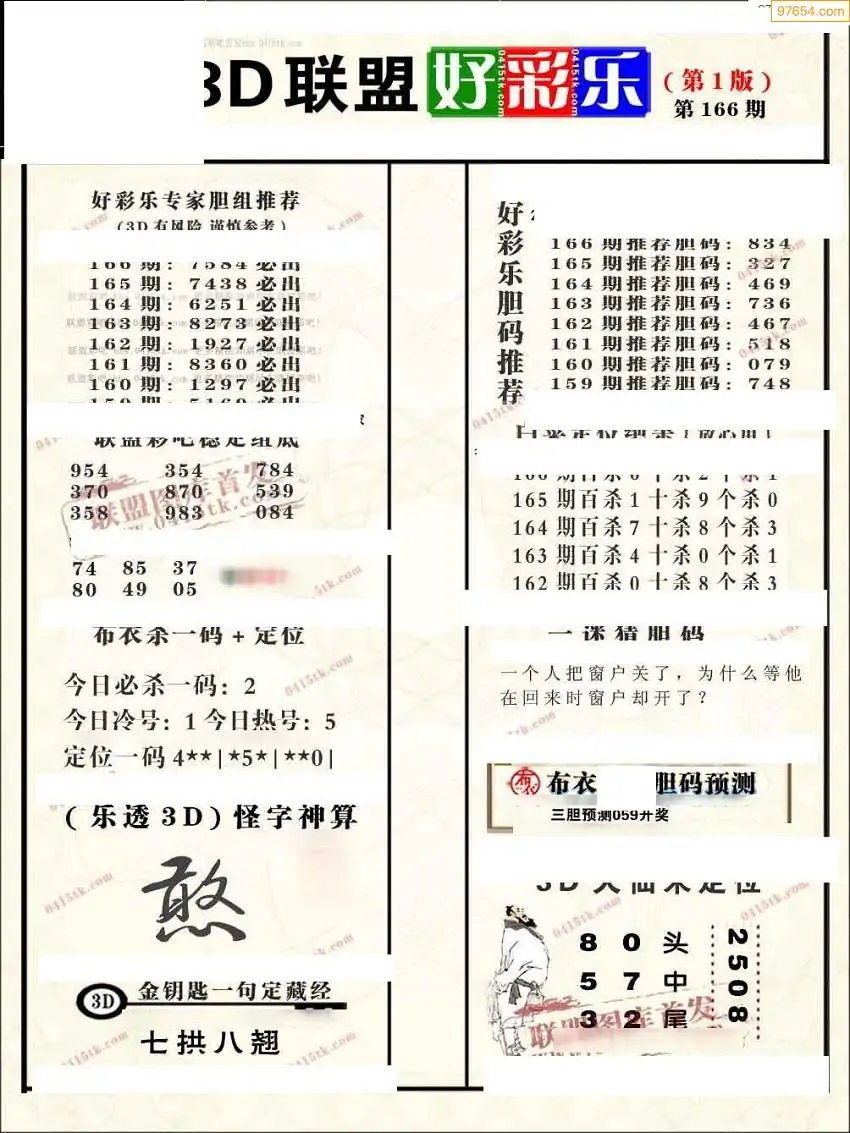 97654.com
3D联盟好彩乐
(第1版)
第166期
好彩乐专家胆组推荐
(3D有风险 谨慎参考)
166期：7584必出
165期：7438必出
164期：6251必出
163期：8273必出
162期：1927必出
161期：8360必出
160期：1297必出
159期：5160必出
联盟彩吧稳定组底
954 354 784
370 870 539
358 983 084
74 85 37
80 49 05
布衣杀一码+定位
今日必杀一码：2
今日冷号：1 今日热号：5
定位一码4**|*5*|**0|
(乐透3D)怪字神算
憨
3D 金钥匙一句定藏经
七拱八翘
好彩乐胆码推荐
166期推荐胆码：834
165期推荐胆码：327
164期推荐胆码：469
163期推荐胆码：736
162期推荐胆码：467
161期推荐胆码：518
160期推荐胆码：079
159期推荐胆码：748
165期百杀1十杀9个杀0
164期百杀7十杀8个杀3
163期百杀4十杀0个杀1
162期百杀0十杀8个杀3
一谜猜胆码
一个人把窗户关了，为什么等他
在回来时窗户却开了？
布衣 胆码预测
三胆预测059开奖
3D大仙来定位
8 0 头
5 7 中
3 2 尾
2508
联盟图库首发
www.0415tk.com
联盟图库首发
0415tk.com